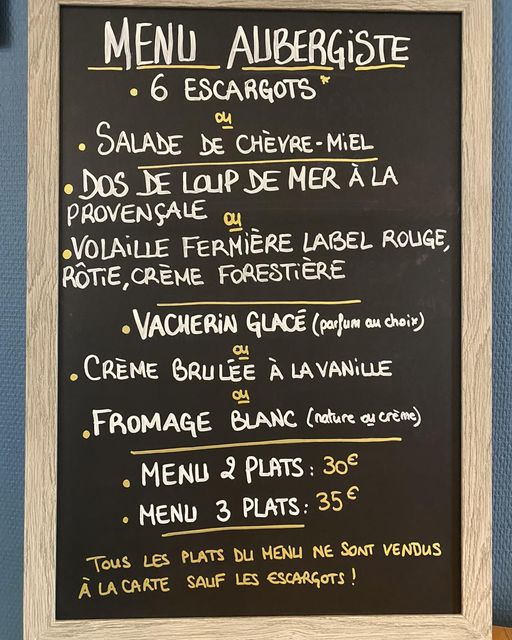 MENU AUBERGISTE
• 6 ESCARGOTS*
ou
• SALADE DE CHÈVRE-MIEL
• DOS DE LOUP DE MER À LA
PROVENÇALE ou
• VOLAILLE FERMIÈRE LABEL ROUGE,
RÔTIE, CRÈME FORESTIÈRE
• VACHERIN GLACÉ (parfum au choix)
ou
• CRÈME BRULÉE À LA VANILLE
ou
• FROMAGE BLANC (nature ou crème)
• MENU 2 PLATS : 30€
• MENU 3 PLATS : 35€
TOUS LES PLATS DU MENU NE SONT VENDUS
À LA CARTE SAUF LES ESCARGOTS !